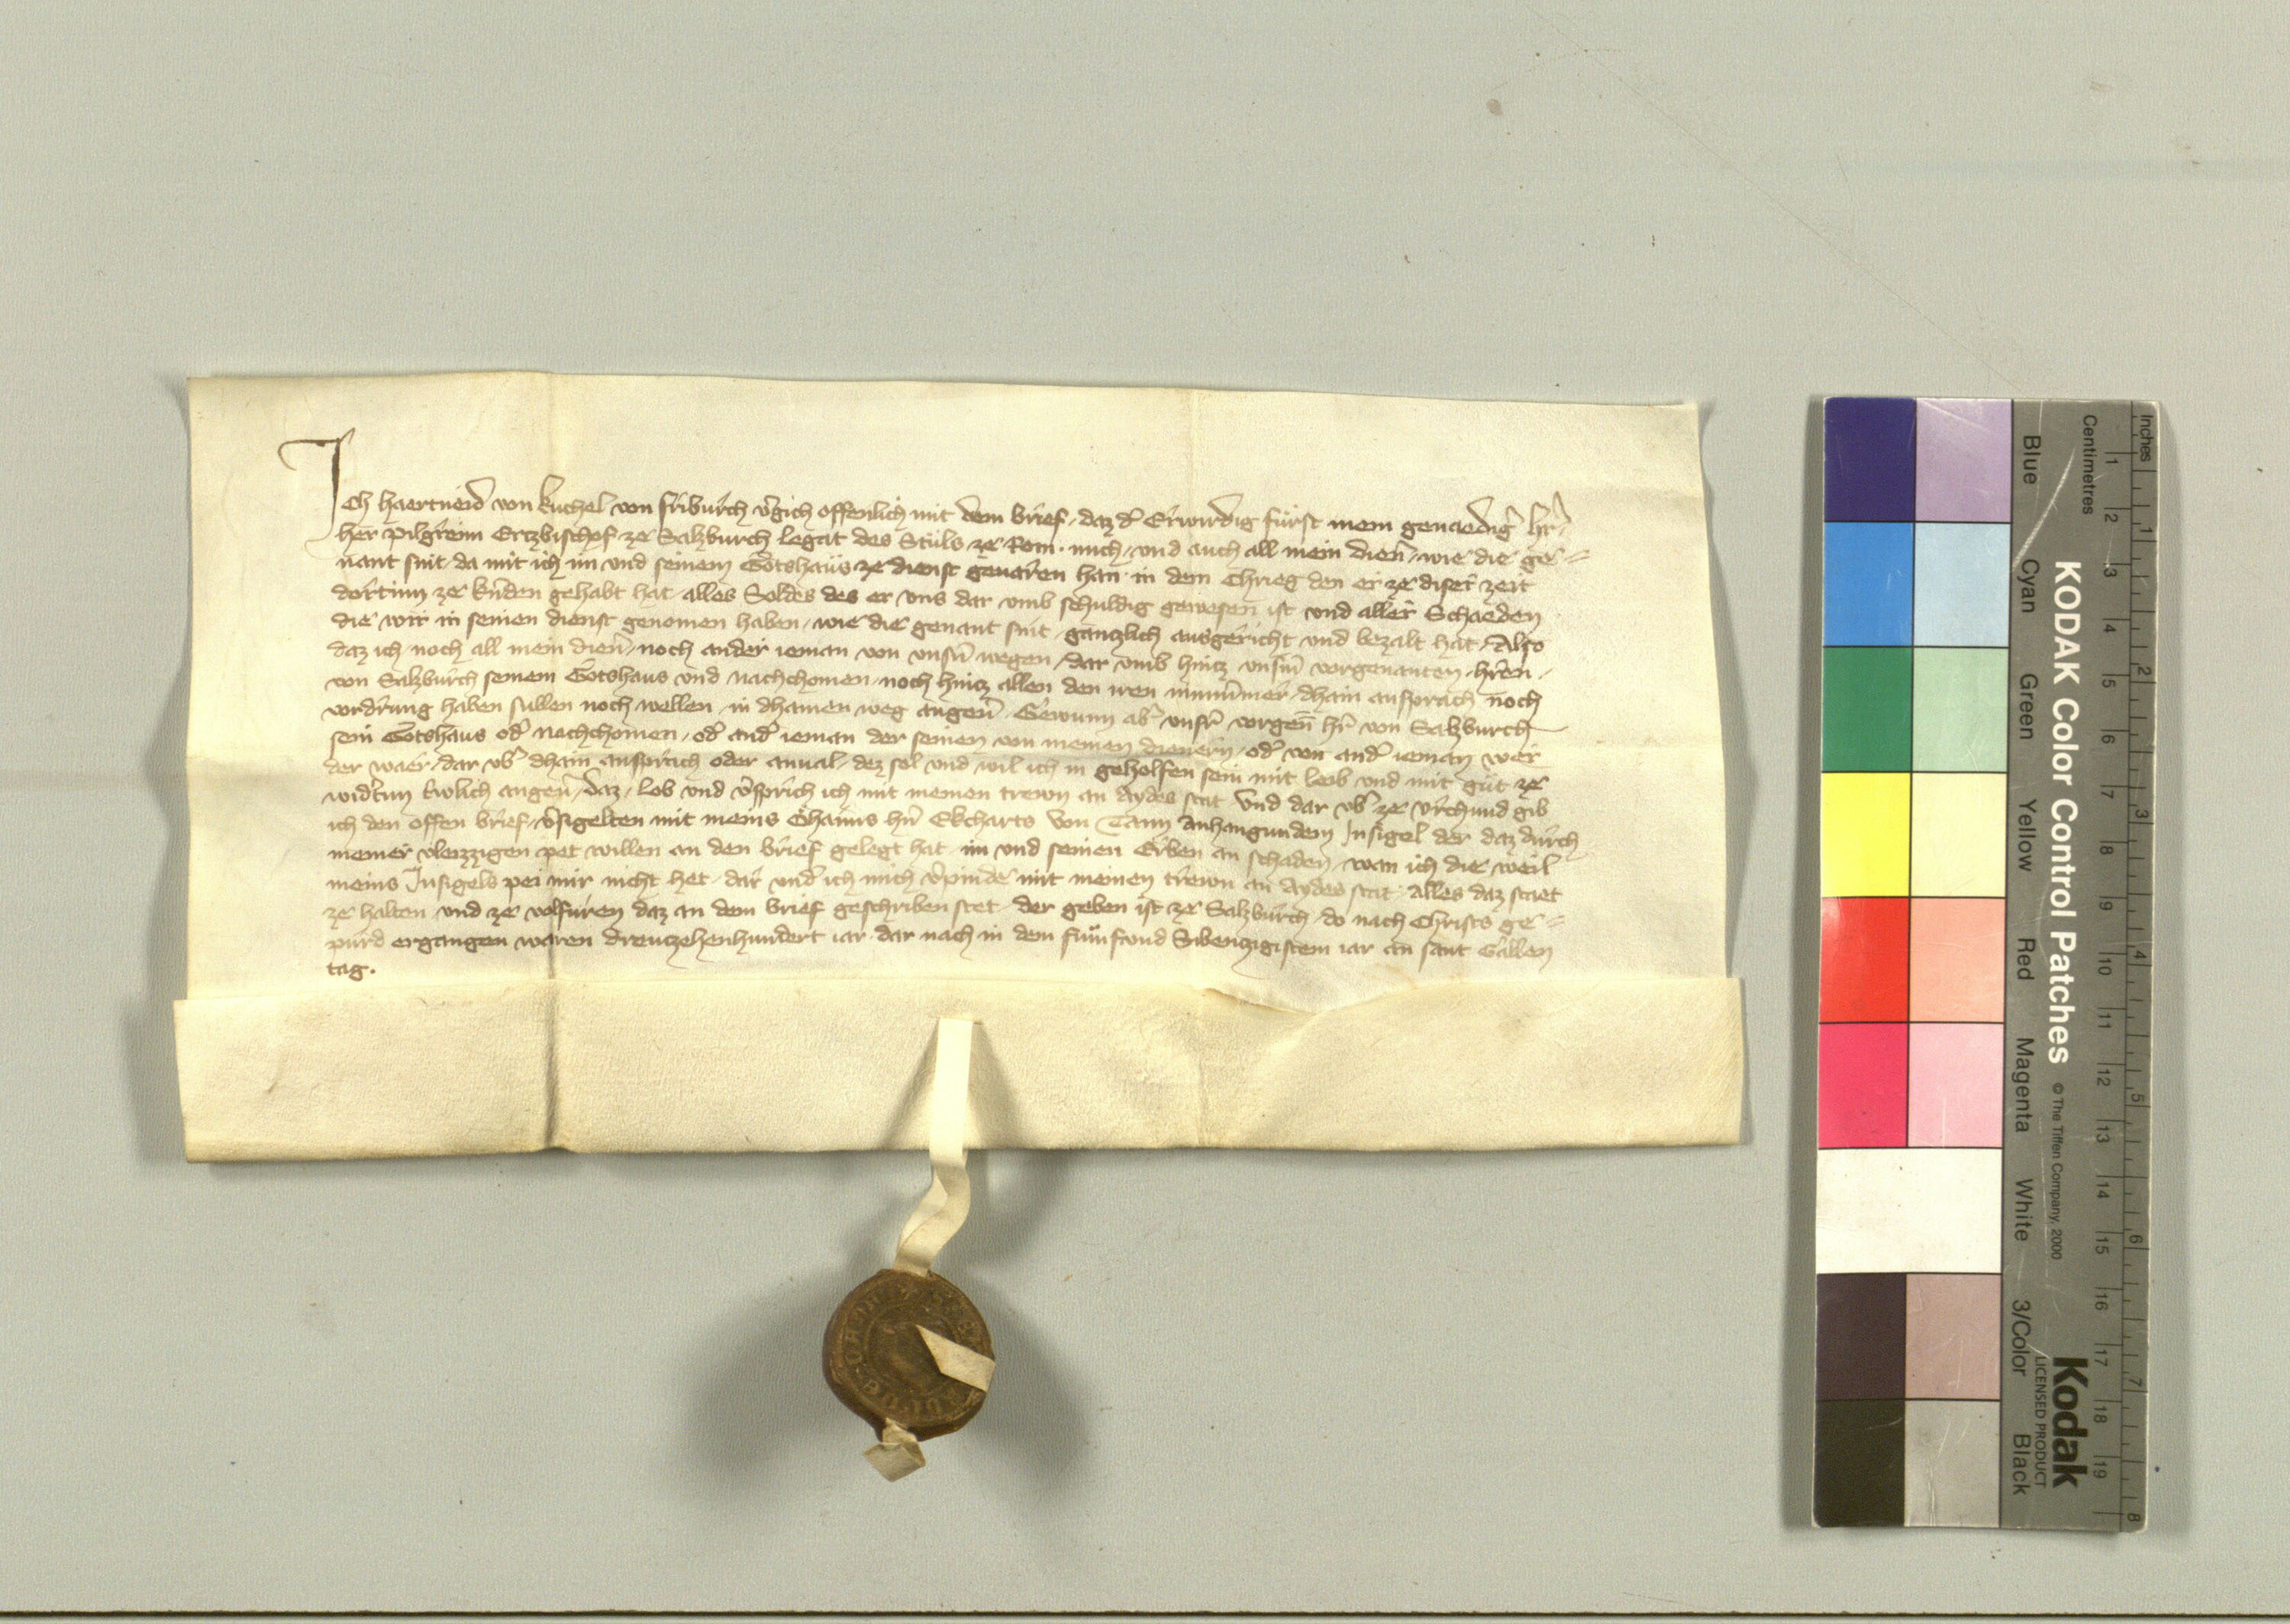 Ich Haertneid von Kuchel von Friburch v̄gich offenlich mit dem brief, daz d̄ Erwirdig fürst mein genaediḡ hr̄
her Pilgreim Ertzbischof ze Salzburch legat des Stuls ze Rom, mich, und auch all mein dien̄, wie die ge=
nant sint, da mit ich im und seinem Gotshaus ze dienst geuaren han, in dem Chrieg den er ze diser zeit
dortinn ze kn̄den gehabt hat, alles Soldes des er uns dar umb schuldig gewesen ist und aller Schaeden
die wir in seinen dienst genomen haben, wie die genant sint, gantzlich ausgericht und bezalt hat, Also
daz ich noch all mein dien̄, noch ander ieman von unsn̄ wegen, dar umb hintz unsm̄ vorgenanten hr̄en,
von Salzburch seinem Gotshaus und nachchomen, noch hintz allen den iren nimm̄mer, dhain ansprach noch
vordrung haben sullen noch wellen, in dhainen weg angeu̅. Gewunn ab̄ unsr̄ vorgen̄ hr̄ von Salzburch
sein Gotshaus od̄ nachchomen, od̄ and̄ ieman der seinen von meinen dienern, od̄ von and̄ ieman wer
der waer, dar ub̄ dhain ansprach oder anual, dez sol und wil ich in geholfen sein mit leib und mit gut ze
wid̄tun trwlich angeu̅, Daz, lob und v̄sprich ich mit meinen trewn an Aydes stat Und dar ub̄ ze urchund gib
ich den offen brief, v̄sigelten mit meins Ohaims hn̄ Ekcharts von Tann anhangundem Insigel der daz durch
meiner vleizzigen pet willen an den brief gelegt hat im und seinen Erben an schaden, wan ich die weil
meins Insigels pei mir nicht het, dar und̄ ich mich v̄pinde mit meinen trewn an Aydes stat, alles daz staet
ze halten und ze volfuren daz an dem brief geschriben stet, der geben ist ze Salzburch, do nach Christs ge=
purd ergangen waren dreutzehenhundert iar, dar nach in dem fumfund Sibentzigistem iar an sant Gallen
tag.
KODAK Color Control Patches © The Tiffen Company, 2000
Kodak
LICENSED PRODUCT
Blue Cyan Green Yellow Red Magenta White 3/Color Black
Centimetres 1 2 3 4 5 6 7 8 9 10 11 12 13 14 15 16 17 18 19
Inches 1 2 3 4 5 6 7 8